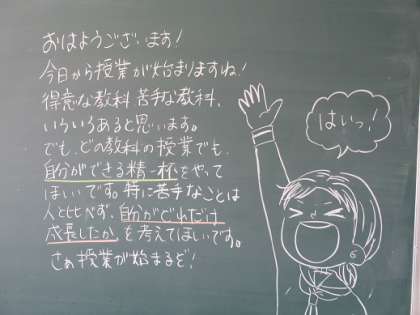 おはようございます!
今日から授業が始まりますね!
得意な教科、苦手な教科、
いろいろあると思います。
でも、どの教科の授業でも、
自分ができる精一杯をやって
ほしいです。特に苦手なことは
人と比べず、自分がどれだけ
成長したか、を考えてほしいです。
さぁ授業が始まるぞ!
はいっ!